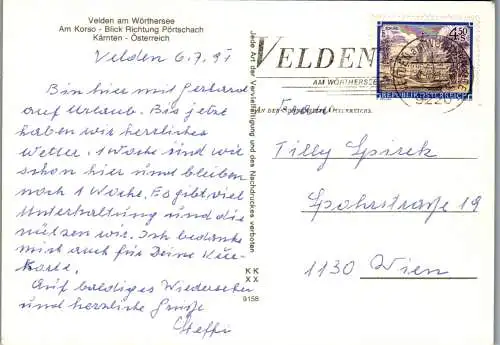 Velden am Wörthersee
Am Korso - Blick Richtung Pörtschach
Kärnten - Österreich
Velden 6.7.91
Bin hier mit Gerhard
auf Urlaub. Bis jetzt
haben wir herzliches
Wetter. 1 Woche sind wir
schon hier und bleiben
noch 1 Woche. Es gibt viel
Unterhaltung und die
nützen wir. Ich bedanke
mich auch für Deine Kur-
karte.
Auf baldiges Wiedersehen
und herzliche Grüße
Steffi
Jede Art der Vervielfältigung und des Nachdruckes verboten
KK
XX
9158
VELDEN
AM WÖRTHERSEE
9220
4.50
REPUBLIK ÖSTERREICH
Frau
Tilly Spirek
Spohrstraße 19
1130 Wien